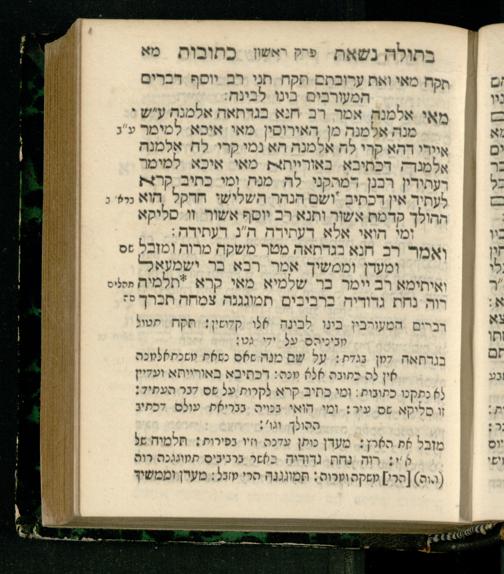 בתולה נשאת פרק ראשון כתובות מא
תקח מאי ואת ערובתם תקח תני רב יוסף דברים
המעורבים בינו לבינה:
מאי אלמנה אמר רב חנא בגדתאה אלמנה ע״ש
מנה אלמנה מן האירוסין מאי איכא למימר ע״ב
איידי דהא קרי לה אלמנה הא נמי קרי לה אלמנה
אלמנה דכתיבא באורייתא מאי איכא למימר
דעתידין רבנן דמתקני לה מנה ומי כתיב קרא
לעתיד אין דכתיב ושם הנהר השלישי חדקל הוא
ההולך קדמת אשור ותנא רב יוסף אשור זו סליקא
ומי הואי אלא דעתידה ה״נ דעתידה:
ואמר רב חנא בגדתאה מטר משקה מרוה ומזבל שם
ומעדן וממשיך אמר רבא בר ישמעאל
ואיתימא רב יימר בר שלמיא מאי קרא *תלמיה תהלים
רוה נחת גדודיה ברביבים תמוגגנה צמחה תברך סה
דברים המעורבין בינו לבינה אלו קדושין: תקח תטול
מביניהם על ידי גט:
בגדתאה דמן בגדת: על שם מנה שאם נשאת משנתאלמנה
אין לה כתובה אלא מנה: דכתיבא באורייתא ועדיין
לא נתקנו כתובות: ומי כתיב קרא לקרות על שם דבר העתיד:
זו סליקא שם עיר: ומי הואי בנויה בבריאת עולם דכתיב
ההולך וגו׳:
מזבל את הארץ: מעדן נותן עדנה וזיו בפירות: תלמיה של
א״י: רוה נחת גדודיה כאשר ברביבים תמוגגנה רוה
(הוה) [הרי] משקה ומרוה: תמוגגנה הרי מזבל: מעדן וממשיך